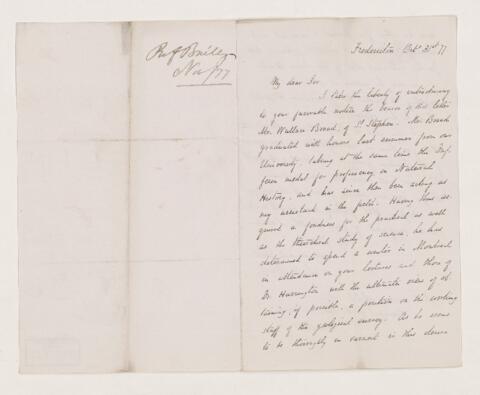 Prof Bailey
Nov/77
Fredericton Oct 31st 77
My dear Sir
I take the liberty of introducing
to your favorable notice the bearer of this letter
Mr. Wallace Broad, of St Stephen. Mr. Broad
graduated with honors last summer from our
University, taking at the same time the Duf-
ferin medal for proficiency in Natural
History, and has since then been acting as
my assistant in the field. Having thus ac-
quired a fondness for the practical as well
as the theoretical study of science, he has
determined to spend a winter in Montreal
in attendance on your lectures and those of
Dr. Harrington with the ultimate view of ob
taining, if possible, a position on the working
staff of the geological survey. As he seems
to be thoroughly in earnest in this desire